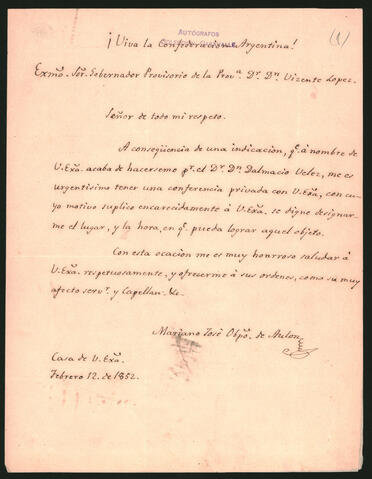 AUTÓGRAFOS
(1)
¡Viva la Confederacion Argentina!
Exmo. Sor. Gobernador Provisorio de la Prova. Dr. Dn. Vizente Lopez.
Señor de todo mi respeto.
A conseqüencia de una indicacion, qe. á nombre de
V. Exa. acaba de hacersemo pr. el Dr. Dn. Dalmacio Velez, me es
urgentisimo tener una conferencia privada con V. Exa., con cu-
yo motivo suplico encarecidamente á V. Exa. se digne designar-
me el lugar, y la hora, en qe. pueda lograr aquel objeto.
Con esta ocacion me es muy honrroso saludar á
V. Exa. respetuosamente, y ofrecerme á sus ordenes, como su muy
afecto servr. y Capellan. &c.
Mariano José Obpo. de Aulon
Casa de V. Exa.
Febrero 12. de 1852.